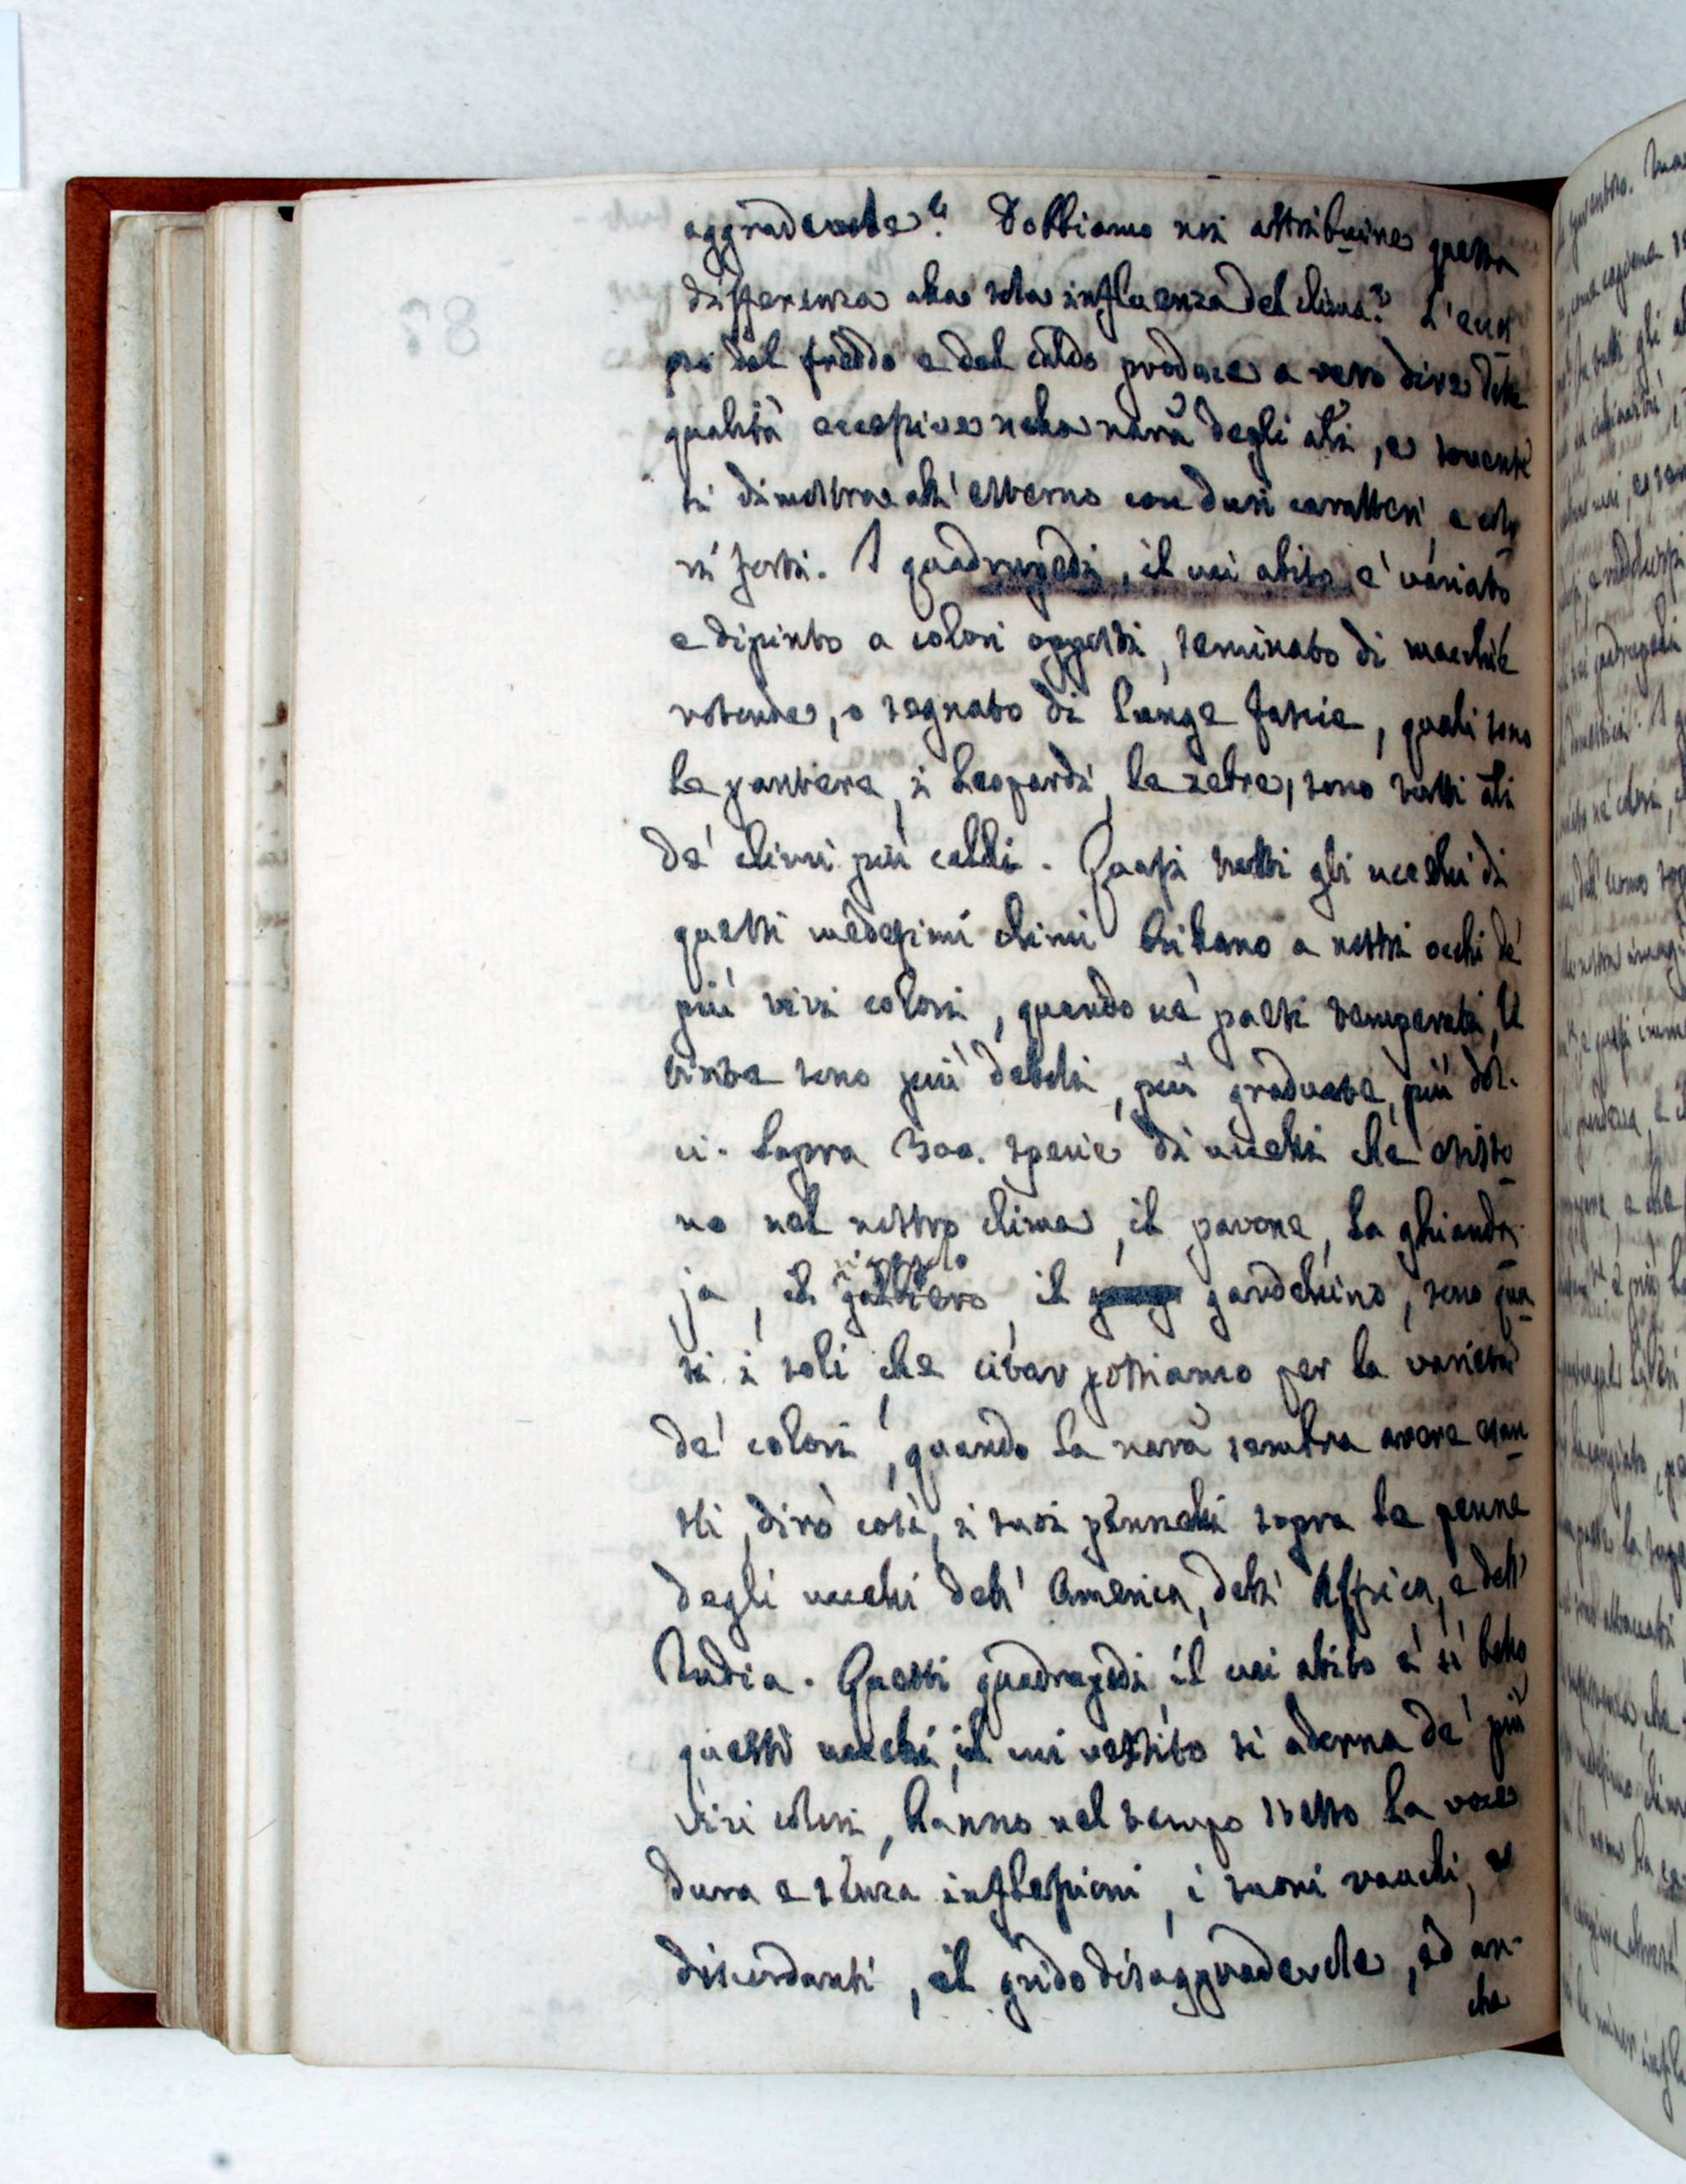 aggradevole? Dobbiamo noi attribuire questa
differenza alla sola influenza del clima? L'ecces
so del freddo e del caldo produce a vero dire delle
qualità eccessive nella nara degli ali, e sovente
si dimostra all'esterno con duri caratteri, e colo
ri forti. I quadrupedi, il cui abito è variato
e dipinto a colori opposti, seminato di macchie
rotonde, o segnato di lunge fascie, quali sono
le pantere, i leopardi, le zebre, sono tutti ali
de' climi più caldi. Quasi tutti gli uccelli di
questi medesimi climi brillano a nostri occhi de'
più vivi colori, quando ne' paesi temperati, le
tinte sono più deboli, più graduate, più dol-
ci. Sopra 300. specie di uccelli che esisto
no nel nostro clima, il pavone, la ghianda-
ja, il il gardellino, sono qua
si i soli che citar possiamo per la varietà
de' colori, quando la nara sembra avere esau
sti, dirò così, i suoi pennelli sopra le penne
degli uccelli dell' America, dell' Affrica, e dell'
India. Questi quadrupedi, il cui abito è sì bello,
questi uccelli, il cui vestito si adorna de' più
vivi colori, hanno nel tempo stesso la voce
dura e senza inflessioni, i suoni rauchi, e
discordanti, il grido disaggradevole, ed an-
che
87